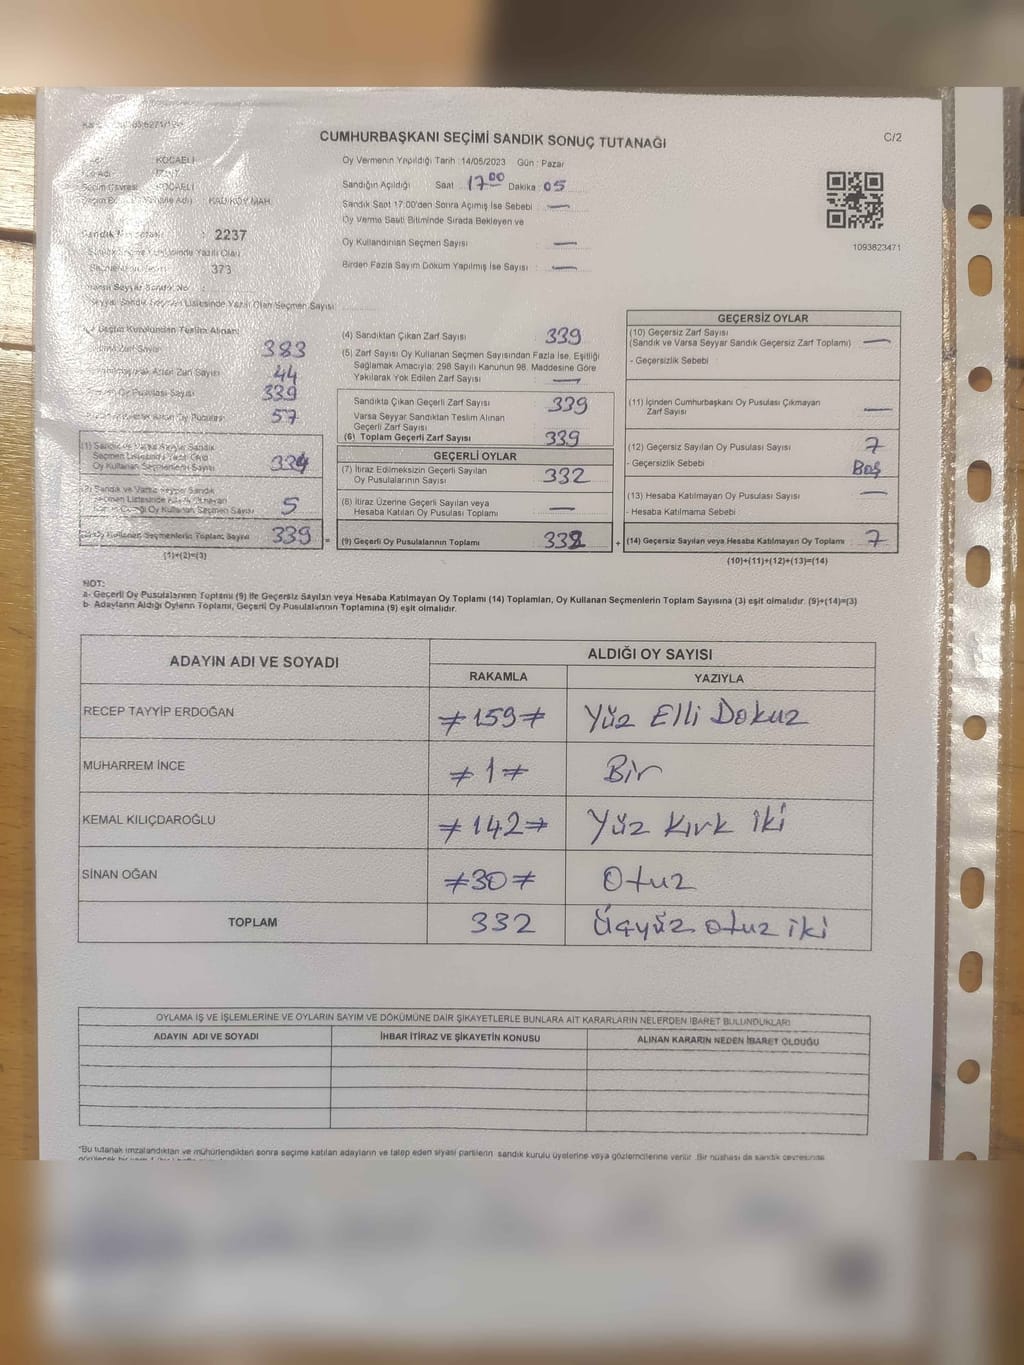 CUMHURBAŞKANI SEÇİMİ SANDIK SONUÇ TUTANAĞI
C/2
Oy Vermenin Yapıldığı Tarih :14/05/2023 Gün : Pazar
KOCAELİ
Sandığın Açıldığı Saat 17:00 Dakika : 05
KOCAELİ
Sandık Saat 17:00'den Sonra Açımış İse Sebebi : —
KADIKÖY MAH.
Oy Verme Saati Bitiminde Sırada Bekleyen ve
Oy Kullandırılan Seçmen Sayısı : —
: 2237
Birden Fazla Sayım Döküm Yapılmış İse Sayısı : —
: 373
1093823471
Seçmen Listesinde Yazılı Olan Seçmen Sayısı
383
44
339
57
Oy Kullanan Seçmenlerin Sayısı 334
5
Oy Kullanan Seçmenlerin Toplam Sayısı 339
(1)+(2)=(3)
(4) Sandıktan Çıkan Zarf Sayısı : 339
(5) Zarf Sayısı Oy Kullanan Seçmen Sayısından Fazla İse, Eşitliği
Sağlamak Amacıyla; 298 Sayılı Kanunun 98. Maddesine Göre
Yakılarak Yok Edilen Zarf Sayısı : —
Sandıkta Çıkan Geçerli Zarf Sayısı : 339
Varsa Seyyar Sandıktan Teslim Alınan
Geçerli Zarf Sayısı
(6) Toplam Geçerli Zarf Sayısı : 339
GEÇERLİ OYLAR
(7) İtiraz Edilmeksizin Geçerli Sayılan
Oy Pusulalarının Sayısı : 332
(8) İtiraz Üzerine Geçerli Sayılan veya
Hesaba Katılan Oy Pusulası Toplamı : —
= (9) Geçerli Oy Pusulalarının Toplamı : 332
GEÇERSİZ OYLAR
(10) Geçersiz Zarf Sayısı
(Sandık ve Varsa Seyyar Sandık Geçersiz Zarf Toplamı) : —
- Geçersizlik Sebebi :
(11) İçinden Cumhurbaşkanı Oy Pusulası Çıkmayan
Zarf Sayısı : —
(12) Geçersiz Sayılan Oy Pusulası Sayısı : 7
- Geçersizlik Sebebi : Boş
(13) Hesaba Katılmayan Oy Pusulası Sayısı : —
- Hesaba Katılmama Sebebi :
+ (14) Geçersiz Sayılan veya Hesaba Katılmayan Oy Toplamı : 7
(10)+(11)+(12)+(13)=(14)
NOT:
a- Geçerli Oy Pusulalarının Toplamı (9) ile Geçersiz Sayılan veya Hesaba Katılmayan Oy Toplamı (14) Toplamları, Oy Kullanan Seçmenlerin Toplam Sayısına (3) eşit olmalıdır. (9)+(14)=(3)
b- Adayların Aldığı Oyların Toplamı, Geçerli Oy Pusulalarının Toplamına (9) eşit olmalıdır.
ADAYIN ADI VE SOYADI ALDIĞI OY SAYISI
RAKAMLA YAZIYLA
RECEP TAYYİP ERDOĞAN ≠159≠ Yüz Elli Dokuz
MUHARREM İNCE ≠1≠ Bir
KEMAL KILIÇDAROĞLU ≠142≠ Yüz Kırk İki
SİNAN OĞAN ≠30≠ Otuz
TOPLAM 332 Üçyüz otuz iki
OYLAMA İŞ VE İŞLEMLERİNE VE OYLARIN SAYIM VE DÖKÜMÜNE DAİR ŞİKAYETLERLE BUNLARA AİT KARARLARIN NELERDEN İBARET BULUNDUKLARI
ADAYIN ADI VE SOYADI İHBAR İTİRAZ VE ŞİKAYETİN KONUSU ALINAN KARARIN NEDEN İBARET OLDUĞU
"Bu tutanak imzalandıktan ve mühürlendikten sonra seçime katılan adayların ve talep eden siyasi partilerin sandık kurulu üyelerine veya gözlemcilerine verilir. Bir nüshası da sandık çevresinde